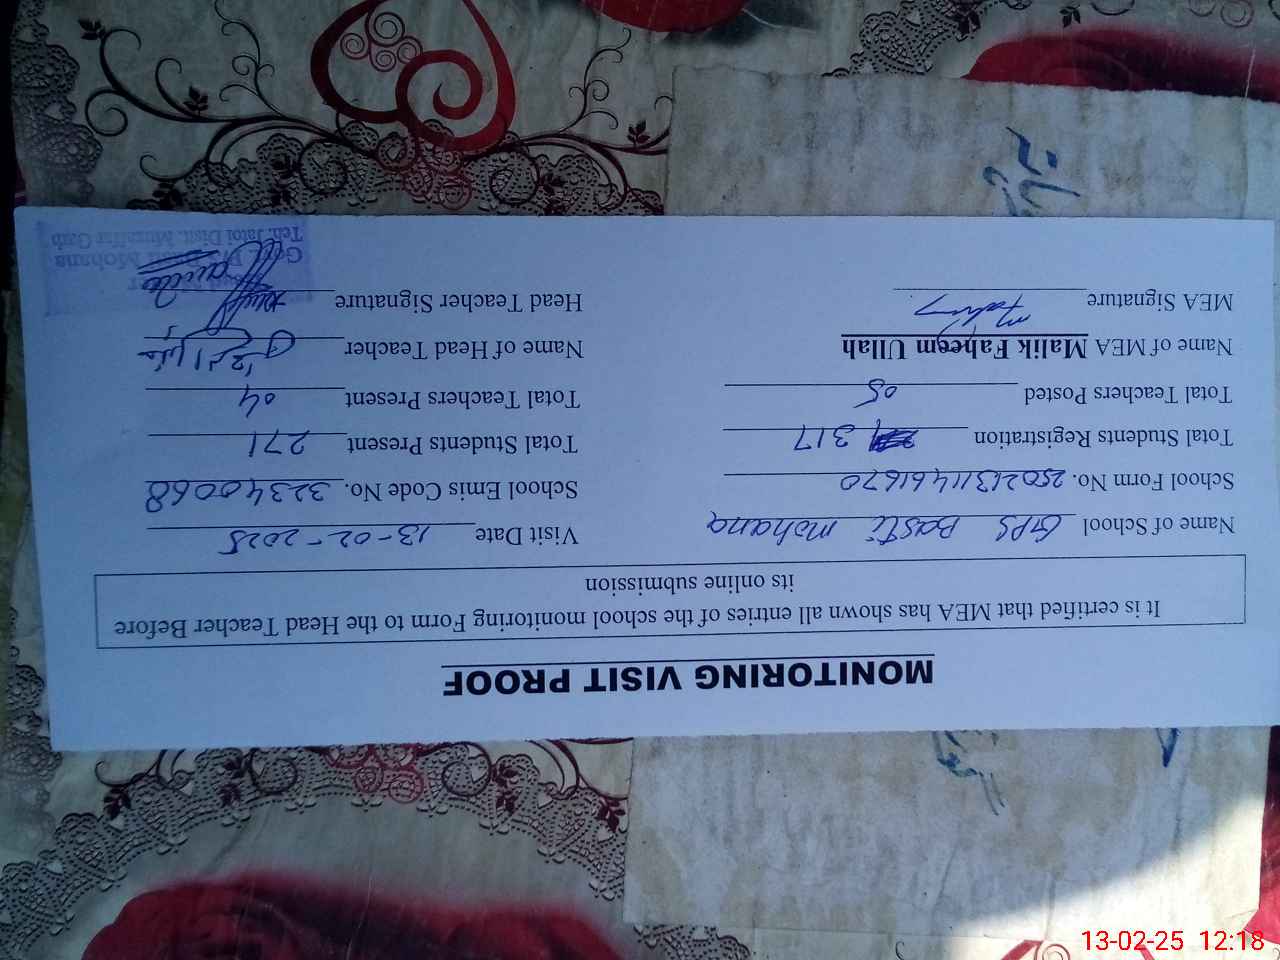 MONITORING VISIT PROOF
It is certified that MEA has shown all entries of the school monitoring Form to the Head Teacher Before
its online submission
Name of School GPS Basti mohana Visit Date 13-02-2025
School Form No. 25021311461670 School Emis Code No. 32340068
Total Students Registration 317 Total Students Present 271
Total Teachers Posted 05 Total Teachers Present 04
Name of MEA Malik Faheem Ullah Name of Head Teacher
MEA Signature Head Teacher Signature
Head
Govt. P/S Basti Mohana
Teh. Jatoi Distt. Muzaffar Garh
13-02-25 12:18